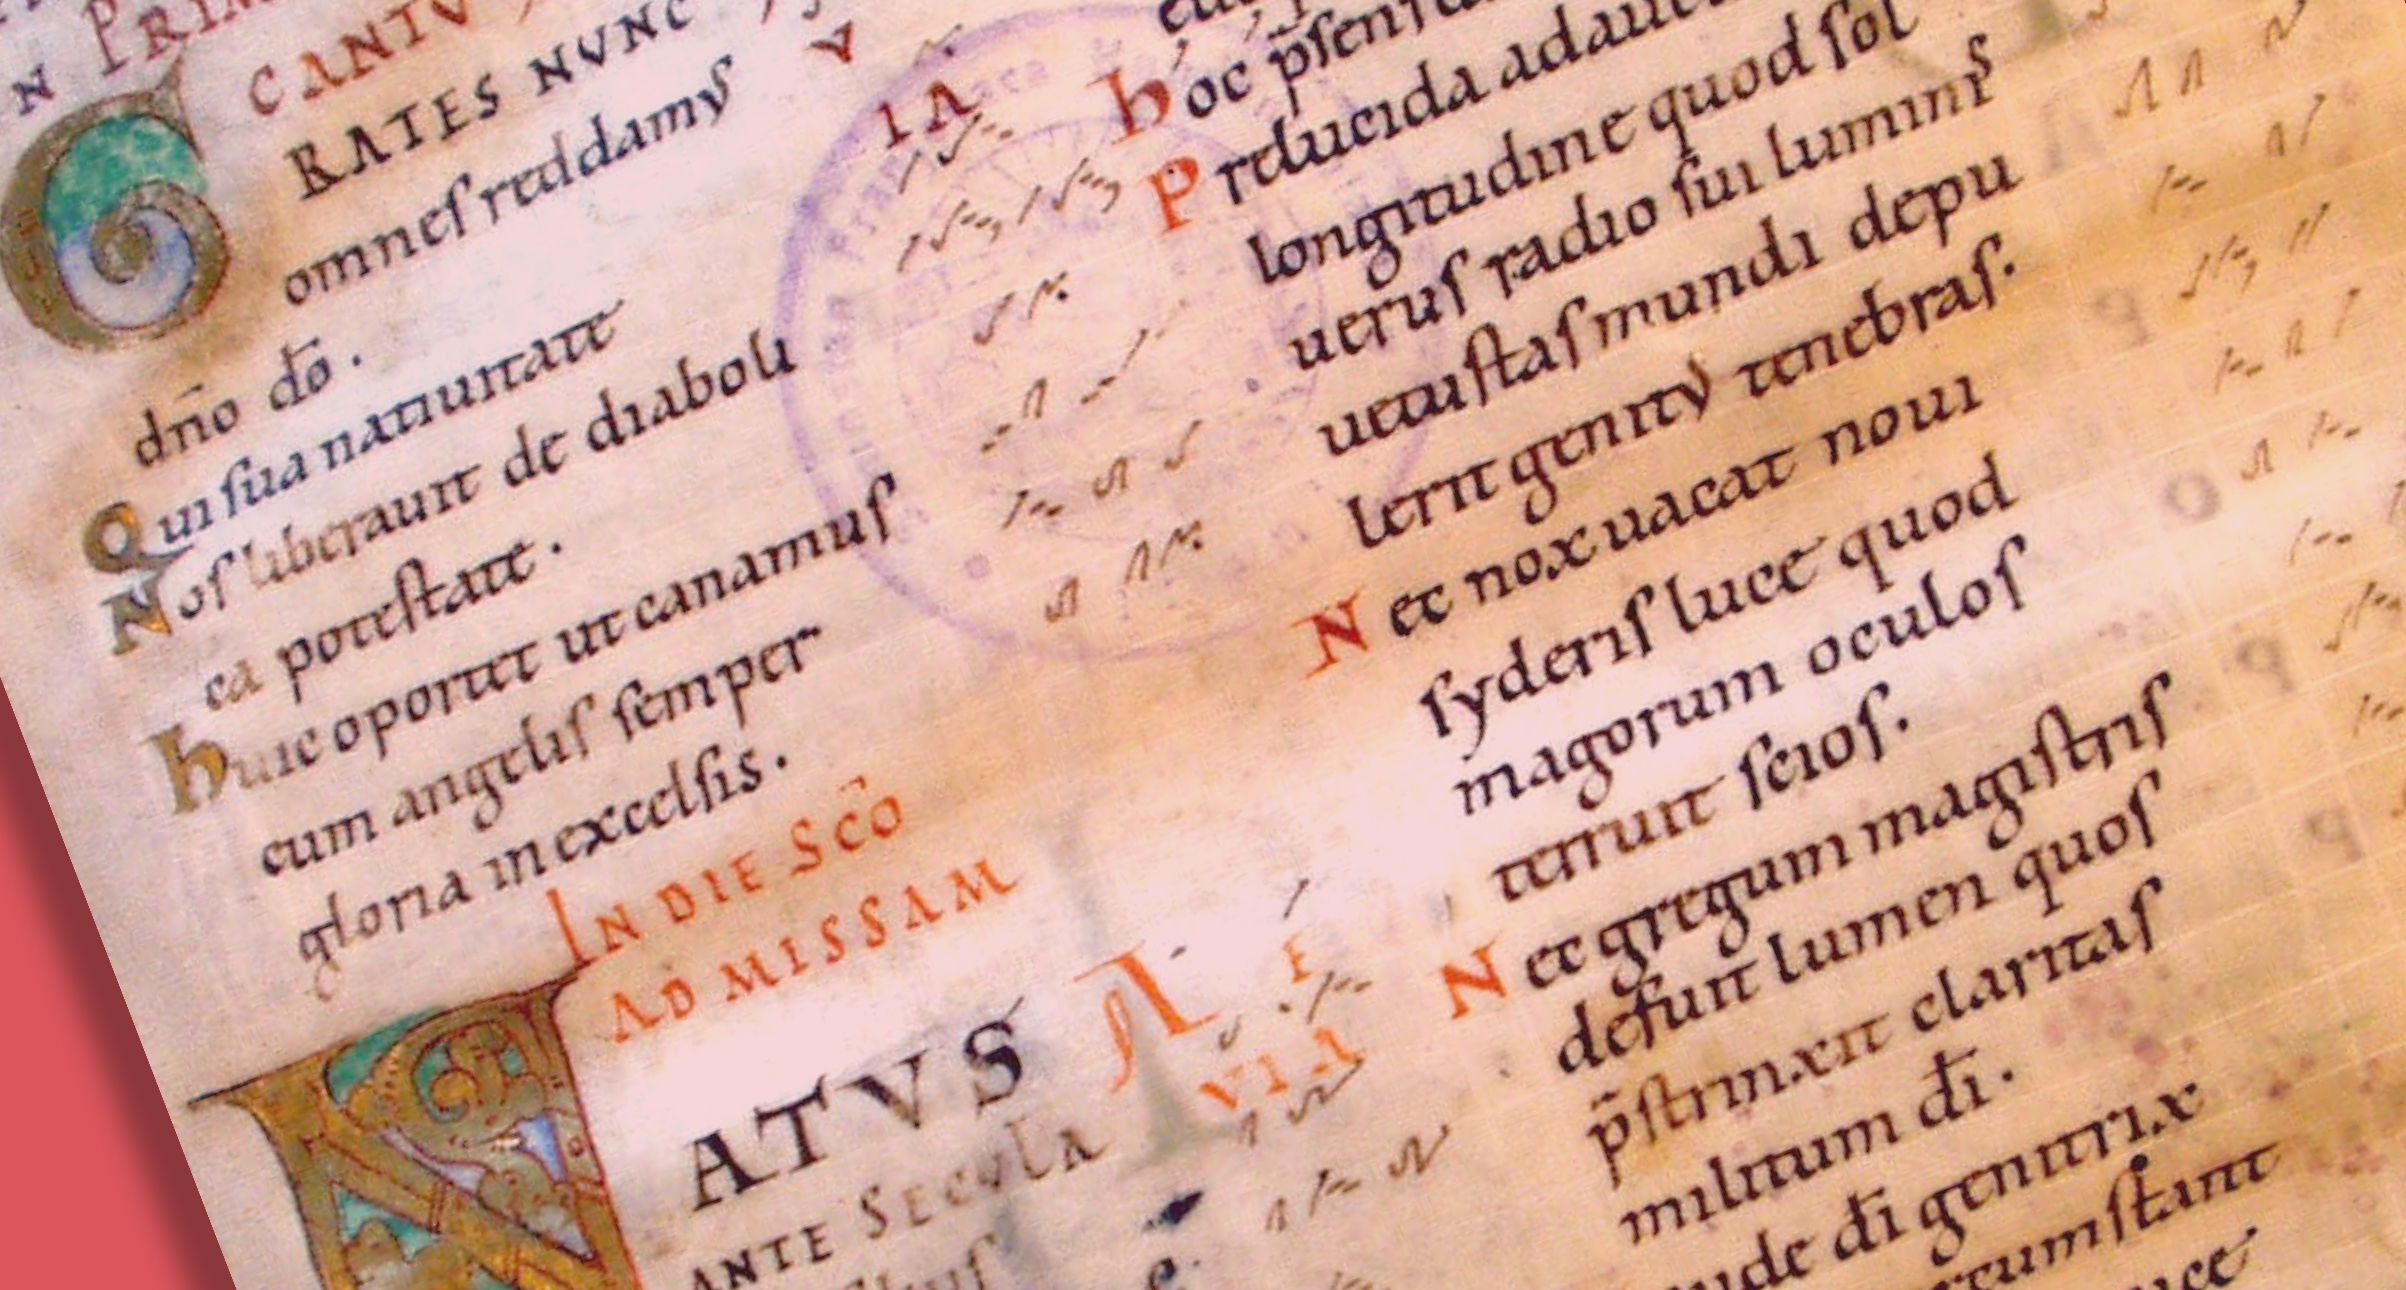 CANTV
GRATES NVNC
omneſ reddamꝰ
dn̄o dō .
Qui ſua natiuitate
Noſ liberauit de diaboli
ca poteſtate .
huic oportet ut canamuſ
cum angeliſ ſemper
gloria in excelſis .
IN DIE SC̄O
AD MISSAM
NATVS
ANTE SECULA
hoc p̄ſen
Prelucida adauc
longitudine quod ſol
ueruſ radio ſui luminis
uetuſtaſ mundi depu
lerit genitꝰ tenebraſ .
Nec nox uacat noui
ſyderiſ luce quod
magorum oculoſ
terruit ſcioſ .
Nec gregum magiſtriſ
defuit lumen quoſ
p̄ſtrinxit claritaſ
militum di̅ .
ude di̅ genitrix
cumſtant